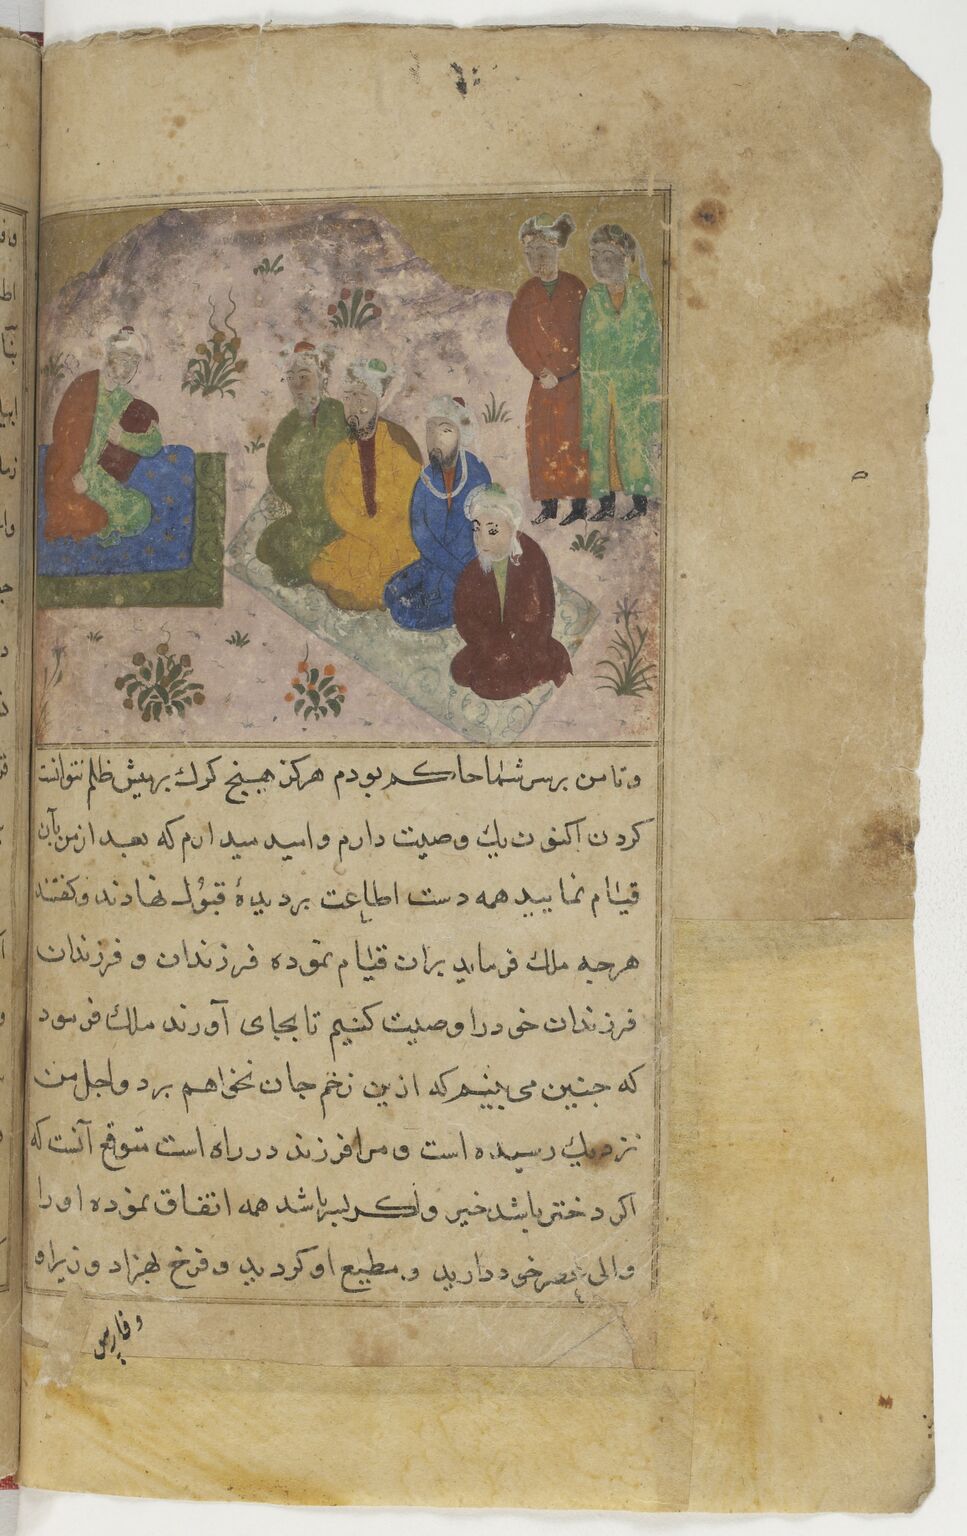 وتا من برسر شما حاکم بودم هرکز هیچ کرک برمیش ظلم نتوانست
کردن اکنون یک وصیت دارم و امید میدارم که بعد از من بآن
قیام نمایید همه دست اطاعت بر دیدۀ قبول نهادند و کفتند
هرچه ملک فرماید بران قیام نموده فرزندان و فرزندان
فرزندان خود را وصیت کنیم تا بجای آورند ملک فرمود
که جنین می بینم که ازین زخم جان نخواهم برد و اجل من
نزدیک رسیده است و مرا فرزند در راه است متوقع آنست که
اکر دختر باشد خیر و اکر پسر باشد همه اتفاق نموده او را
والی مصر خود دارید و مطیع او کردید و فرخ بهزاد وزیر او
و فارس